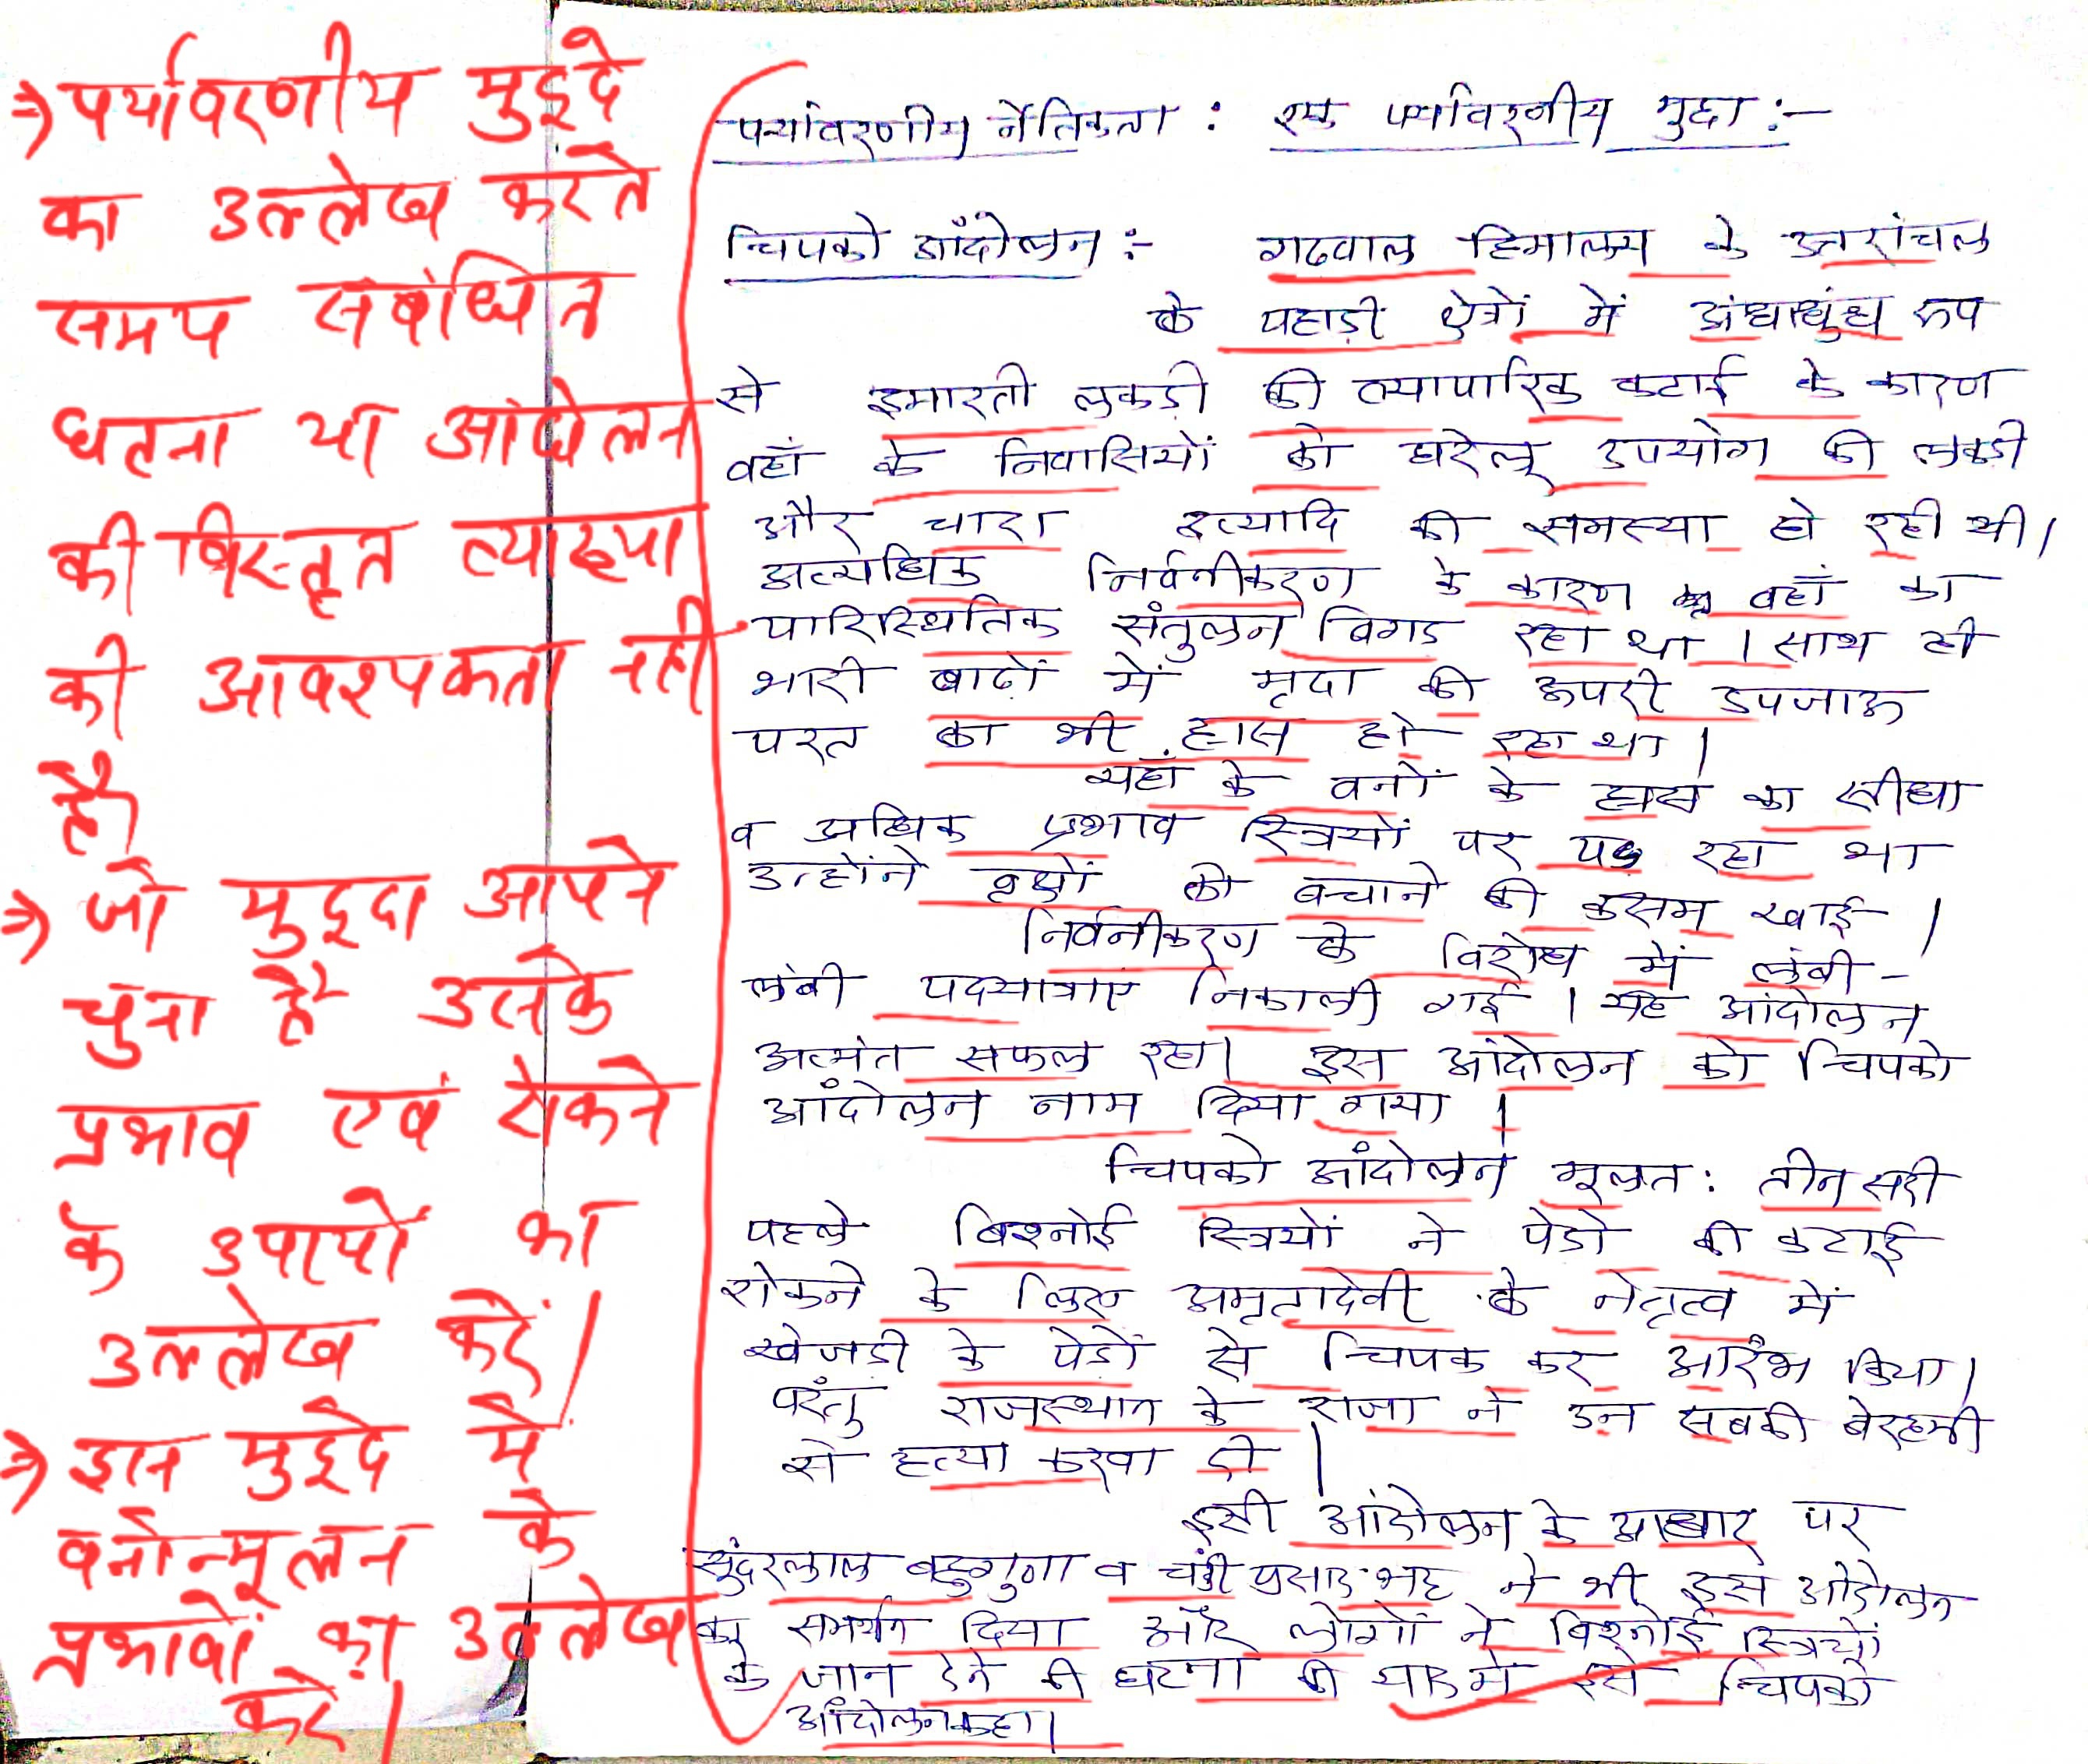 ⇒ पर्यावरणीय मुद्दे
का उल्लेख करते
समय संबंधित
घटना या आंदोलन
की विस्तृत व्याख्या
की आवश्यकता नही
है।
⇒ जो मुद्दा आपने
चुना है उसके
प्रभाव एवं रोकने
के उपायों का
उल्लेख करें।
⇒ इस मुद्दे में
वनोन्मूलन के
प्रभावों का उल्लेख
करे।
पर्यावरणीय नैतिकता : एक पर्यावरणीय मुद्दा :-
चिपको आँदोलन :- गढवाल हिमालय के उत्तरांचल
के पहाड़ी क्षेत्रों में अंधाधुंध रूप
से इमारती लकड़ी की व्यापारिक कटाई के कारण
वहाँ के निवासियों को घरेलू उपयोग की लकडी
और चारा इत्यादि की समस्या हो रही थी।
अत्यधिक निर्वनीकरण के कारण वहाँ का
पारिस्थितिक संतुलन बिगड रहा था । साथ ही
भारी बाढों में मृदा की ऊपरी उपजाऊ
परत का भी ह्रास हो रहा था।
यहाँ के वनों के ह्रास का सीधा
व अधिक प्रभाव स्त्रियों पर पड रहा था
उन्होंने वृक्षों को बचाने की कसम खाई ।
निर्वनीकरण के विरोध में लंबी -
लंबी पदयात्राएं निकाली गई । यह आंदोलन
अत्यंत सफल रहा। इस आंदोलन को चिपको
आंदोलन नाम दिया गया ।
चिपको आंदोलन मूलत: तीन सदी
पहले बिश्नोई स्त्रियों ने पेडो की कटाई
रोकने के लिए अमृतादेवी के नेतृत्व में
खेजडी के पेडों से चिपक कर आरंभ किया।
परंतु राजस्थान के राजा ने उन सबकी बेरहमी
से हत्या करवा दी ।
इसी आंदोलन के आधार पर
सुंदरलाल बहुगुणा व चंडी प्रसाद भट्ट ने भी इस आंदोलन
का समर्थन दिया और लोगों ने बिश्नोई स्त्रियों
के जान देने की घटना की याद मे इसे चिपको
आंदोलन कहा।